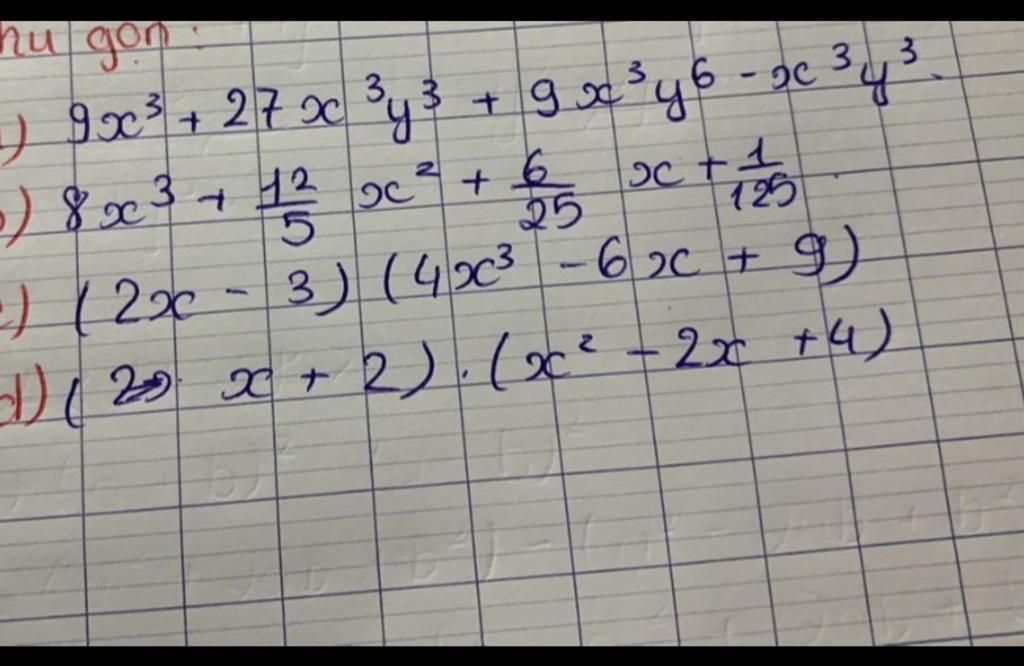 hu gọn:
) 9x³ + 27x³y³ + 9x³y⁶ - x³y³.
) 8x³ + 12/5 x² + 6/25 x + 1/125.
) (2x - 3) (4x³ - 6x + 9)
d) ( x + 2) . (x² - 2x + 4)